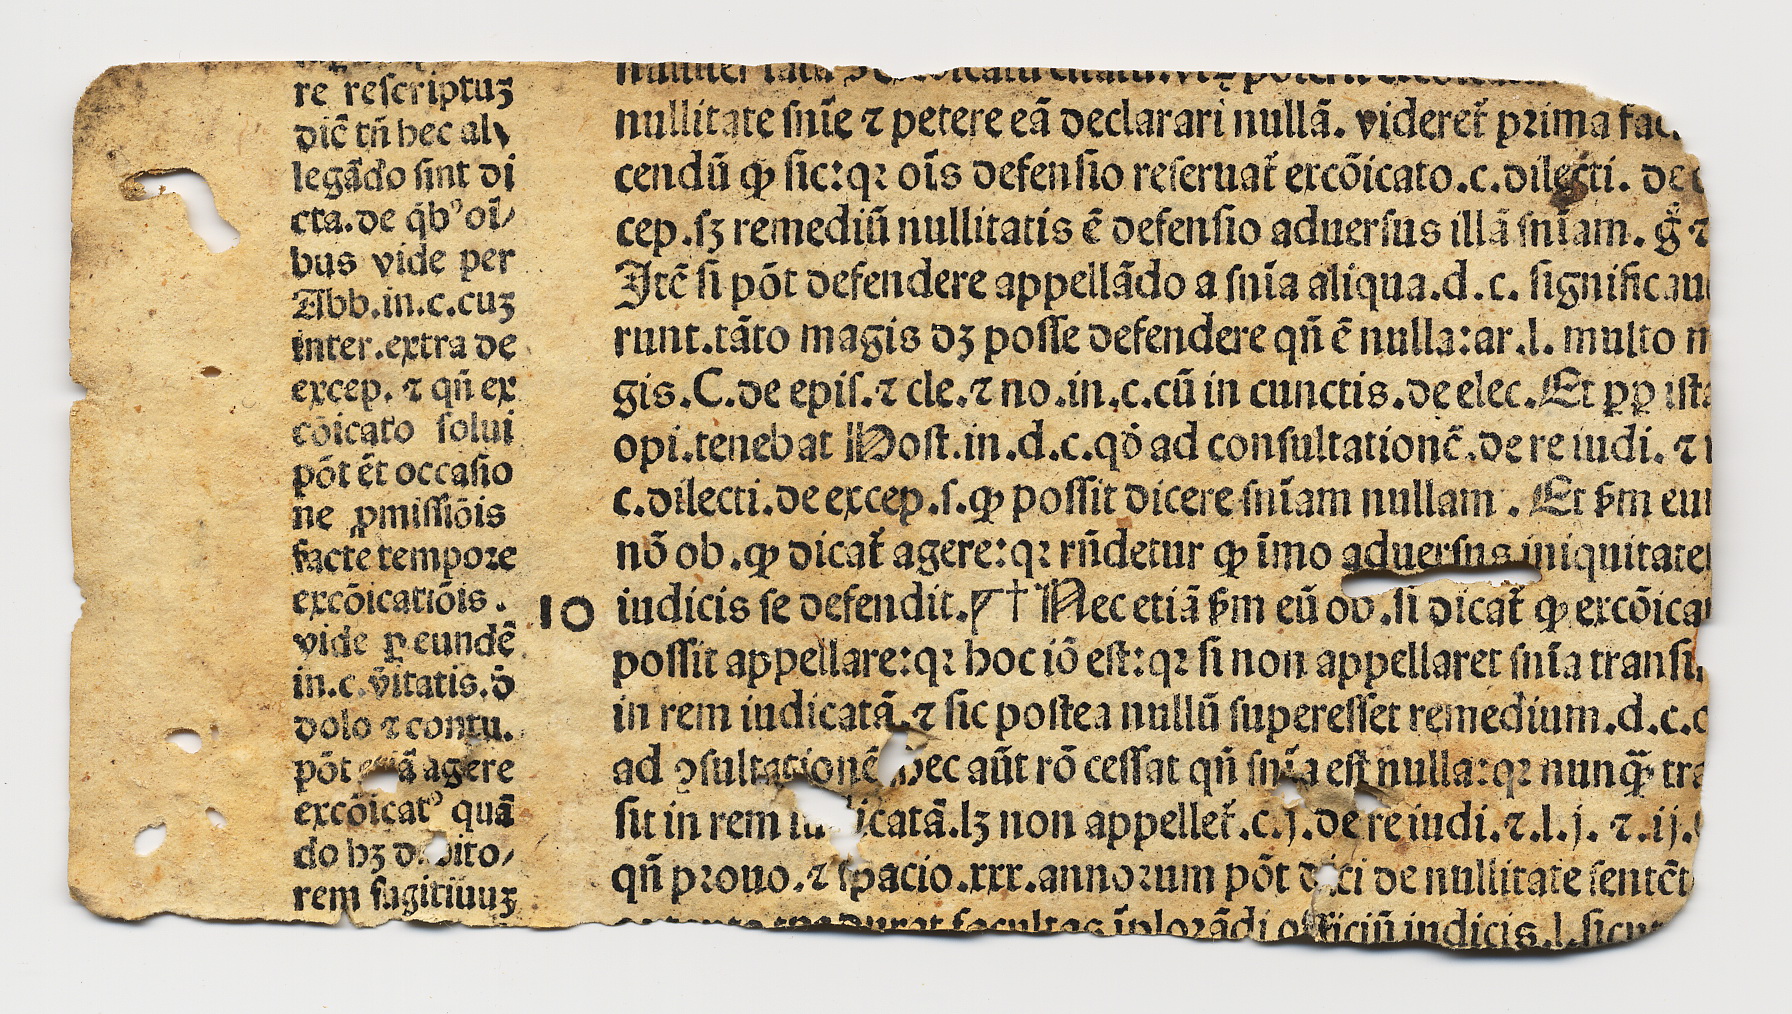 re reſcriptuꝫ
dic̄ tn̄ hec al
legãdo ſint di
cta.de q̃bꝰ oĩ
bus vide per
Abb.in.c.cuꝫ
inter.extra de
excep. ⁊ qñ ex
cõicato ſolui
põt ẽt occaſio
ne ꝑmiſſiõis
facte tempore
excõicatiõis.
vide ꝑ eundẽ
in.c.ṽitatis.õ
dolo ⁊ contu.
põt agere
excõicatꝰ quã
do hꝫ
rem fugitiuuꝫ
nullitate ſnĩe ⁊ petere eã declarari nullã. videret̃ prima
cendũ ꝙ ſic:qꝛ oĩs defenſio reſeruat̃ excõicato.c.dilecti. de
cep.ſꝫ remediũ nullitatis ẽ defenſio aduerſus illã ſnĩam. g̊ ⁊
Itẽ ſi põt defendere appellãdo a ſnĩa aliqua.d.c. ſignificau
runt.tãto magis dꝫ poſſe defendere qñ ẽ nulla:ar.l. multo m
gis.C.de epiſ.⁊ cle.⁊ no.in.c.cũ in cunctis.de elec.Et ꝓp iſta
opi.tenebat Hoſt.in.d.c.qđ ad conſultationẽ.de re iudi. ⁊
c.dilecti.de excep.ſ.ꝙ poſſit dicere ſnĩam nullam. Et ẜm eu
nõ ob.ꝙ dicat̃ agere:qꝛ rñdetur ꝙ ĩmo aduerſus iniquitate
10 iudicis ſe defendit.┌† Nec etiã ẜm eũ ob.ſi dicat̃ ꝙ excõica
poſſit appellare:qꝛ hoc iõ eſt:qꝛ ſi non appellaret ſnĩa tranſi
in rem iudicatã.⁊ ſic poſtea nullũ ſupereſſet remedium.d.c.
ad ↄſultationẽ hec aũt rõ ceſſat qñ ſnĩa eſt nulla:qꝛ nunꝗ̃ tra
ſit in rem iudicatã.lꝫ non appellet̃.c.j.de re iudi.⁊.l.j. ⁊.ij.
qñ prouo.⁊ ſpacio.xxx.annorum põt dici de nullitate ſentẽt
facultas ĩplorãdi officiũ iudicis.l.ſicut